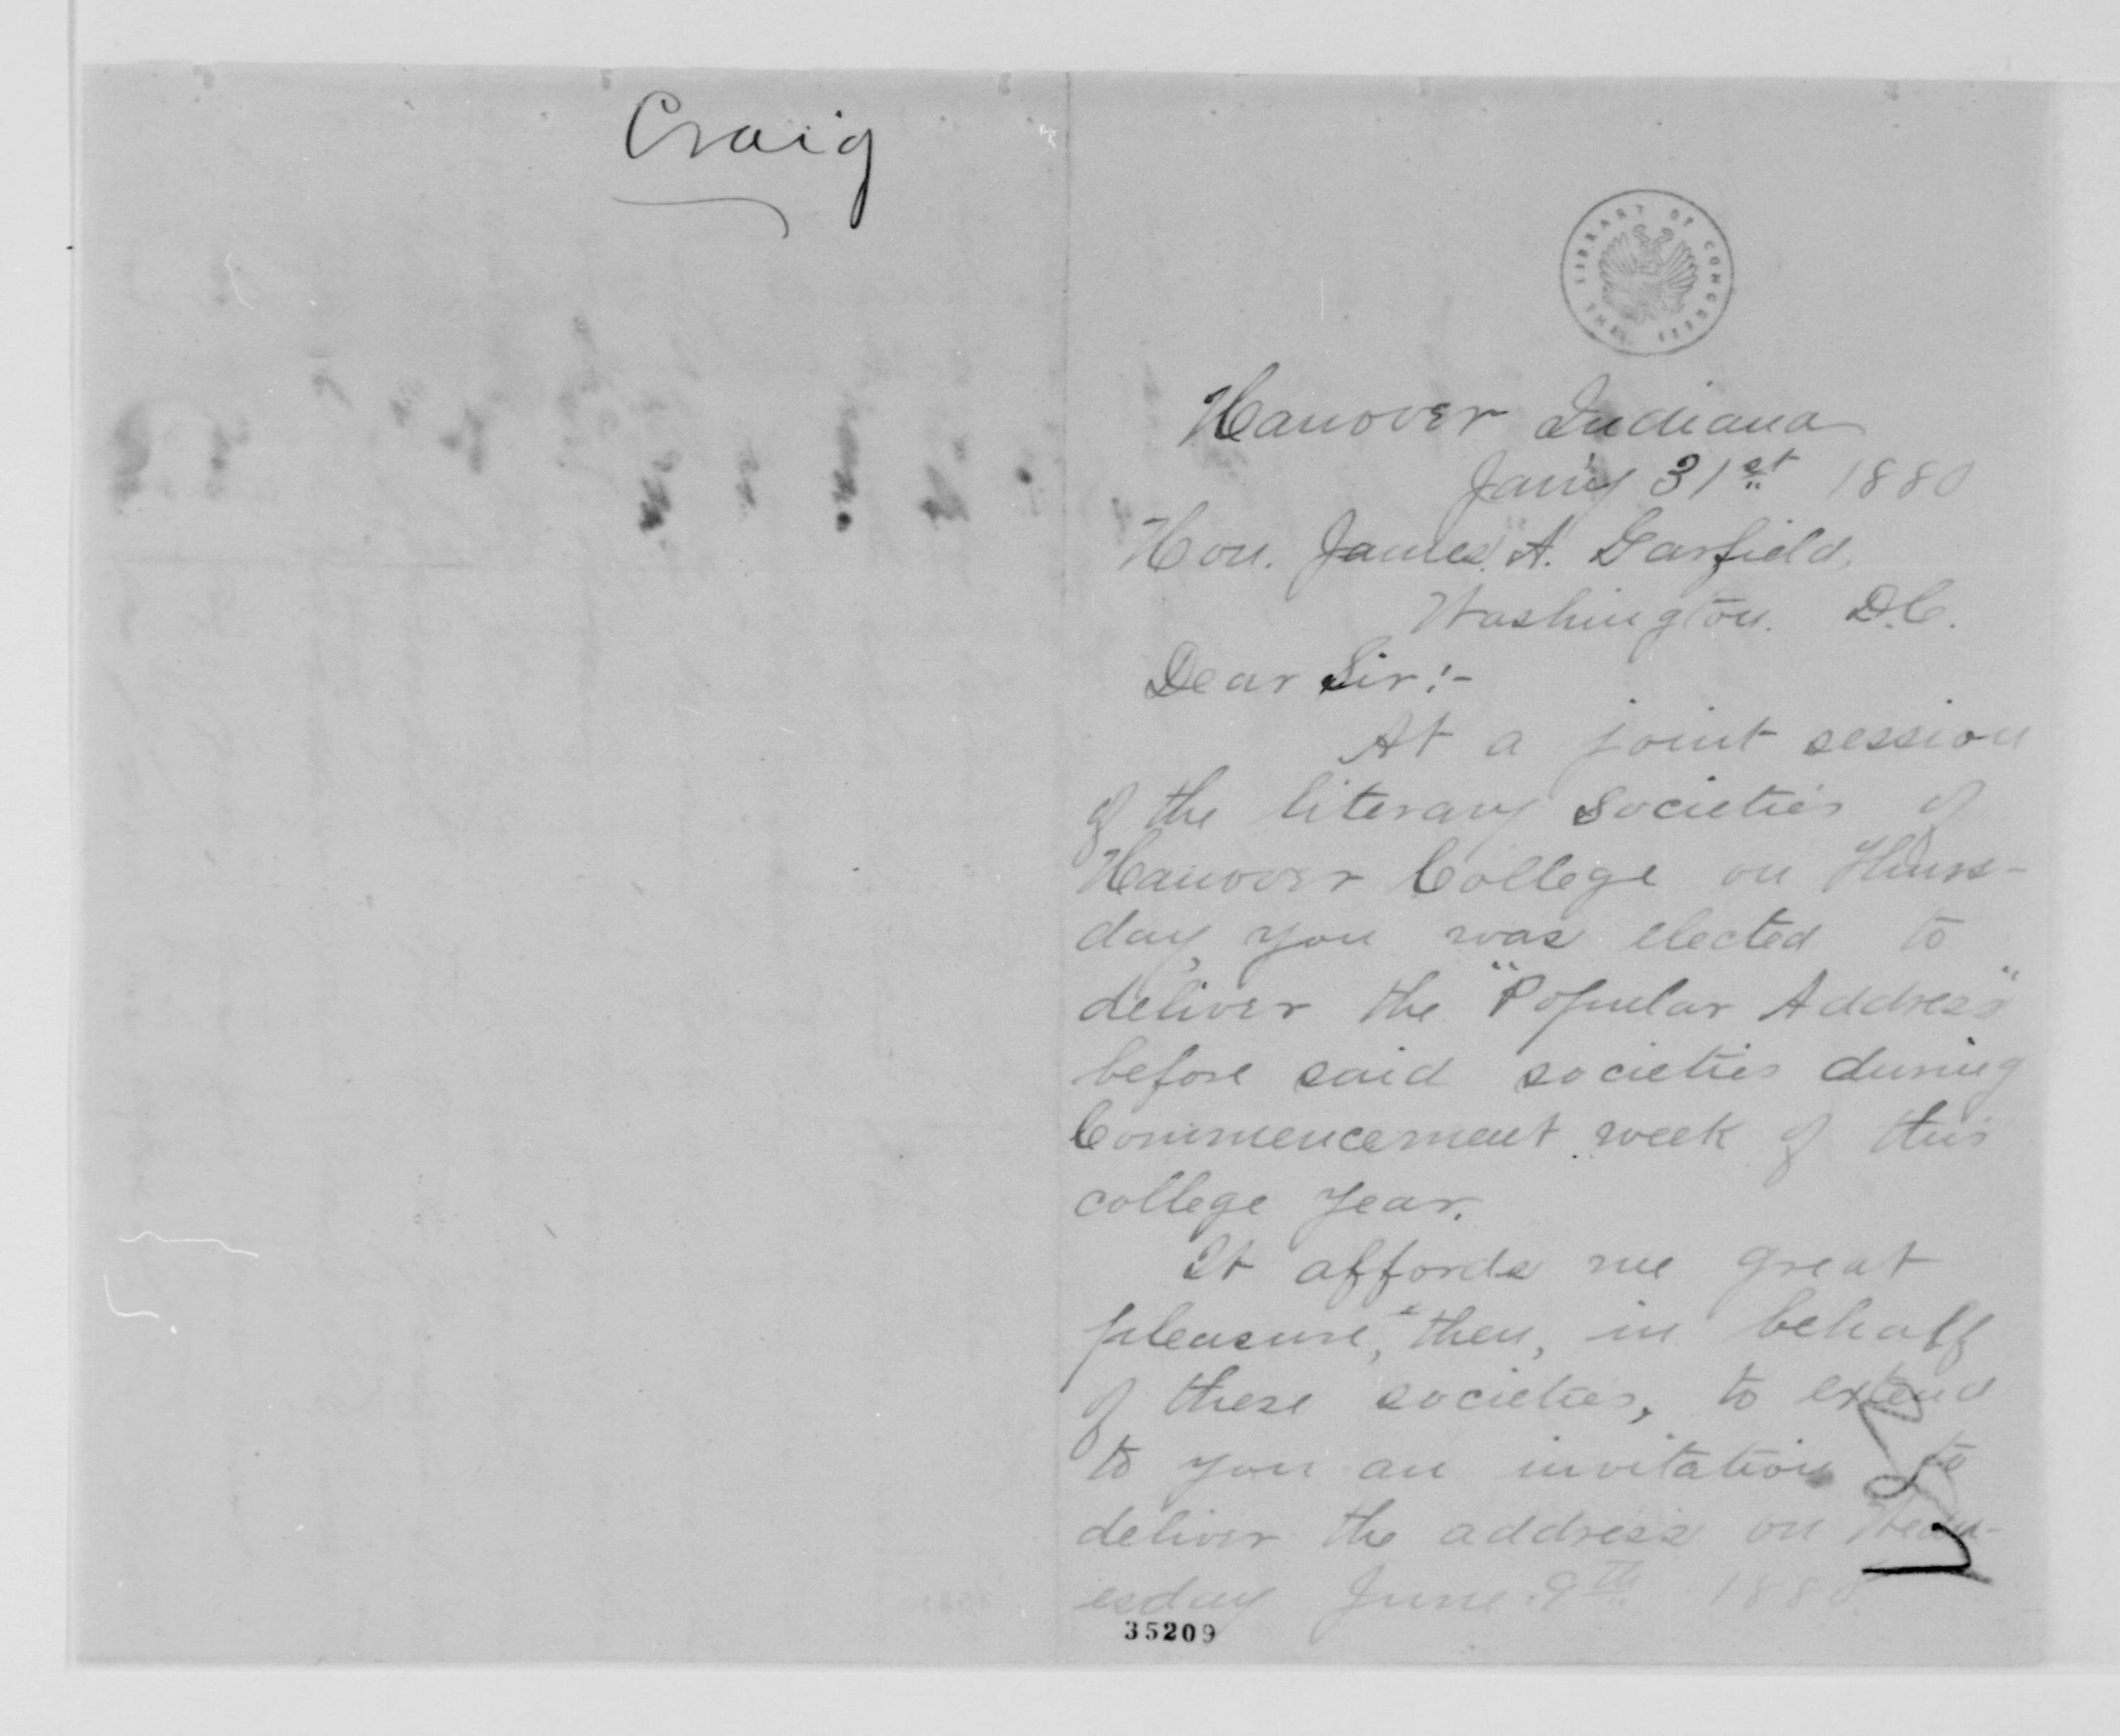 Craig
THE LIBRARY OF CONGRESS
Hanover Indiana
Jan'y 31st 1880
Hon. James. A. Garfield,
Washington. D.C.
Dear Sir:-
At a joint session
of the literary societies of
Hanover College on Thurs-
day, you was elected to
deliver the "Popular Address"
before said societies during
Commencement week of this
college year.
It affords me great
pleasure, then, in behalf
of these societies, to extend
to you an invitation to
deliver the address on Wedn-
esday June 9th 1880
35209